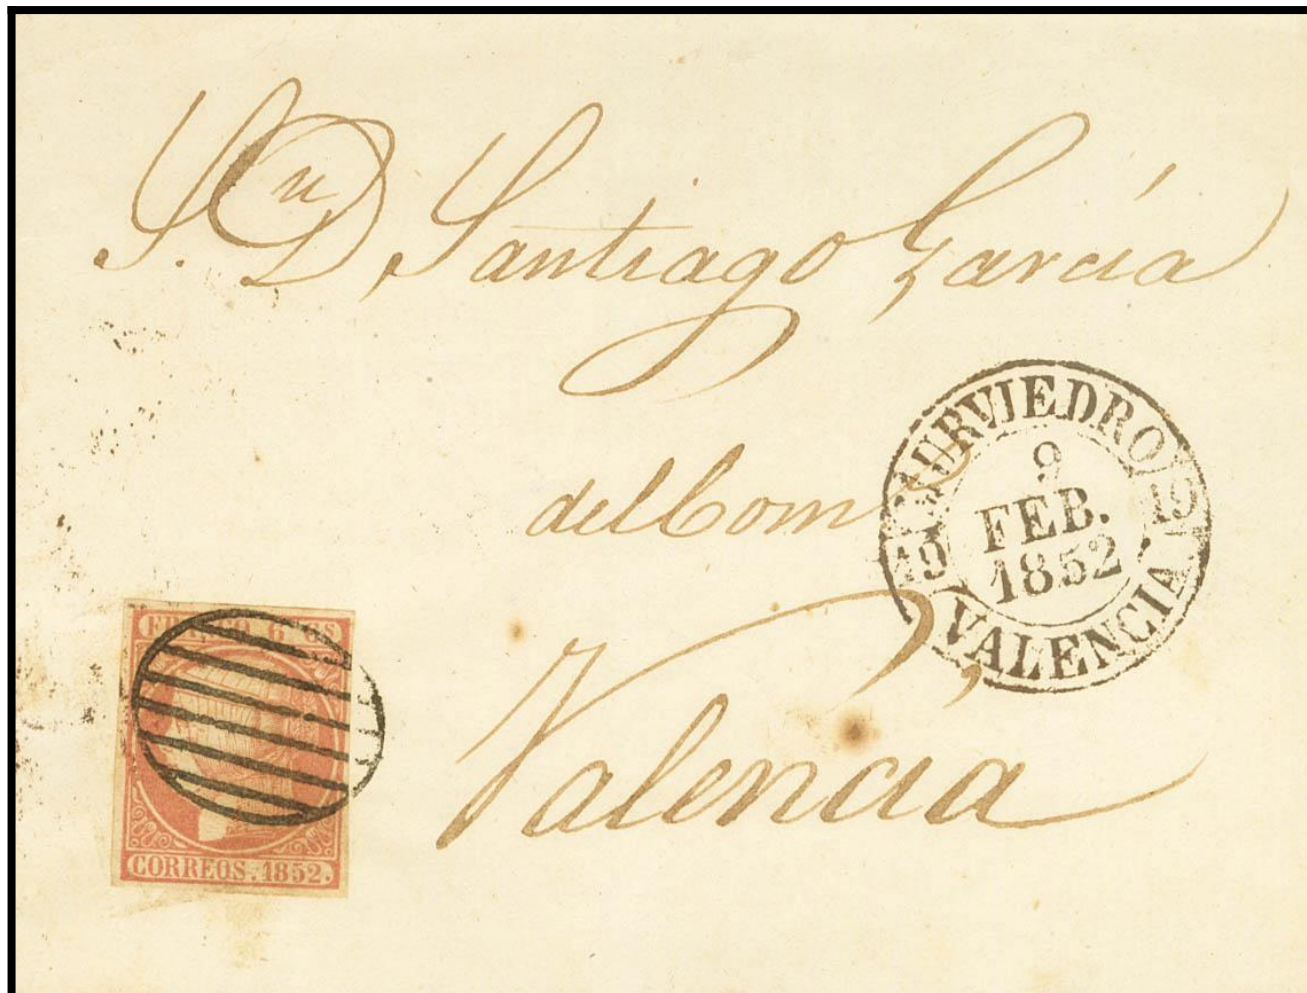 S.n D Santiago García
del Com
Valencia
MURVIEDRO
19
9
FEB.
1852
19
VALENCIA
FRANCO 6 CS
CORREOS. 1852.